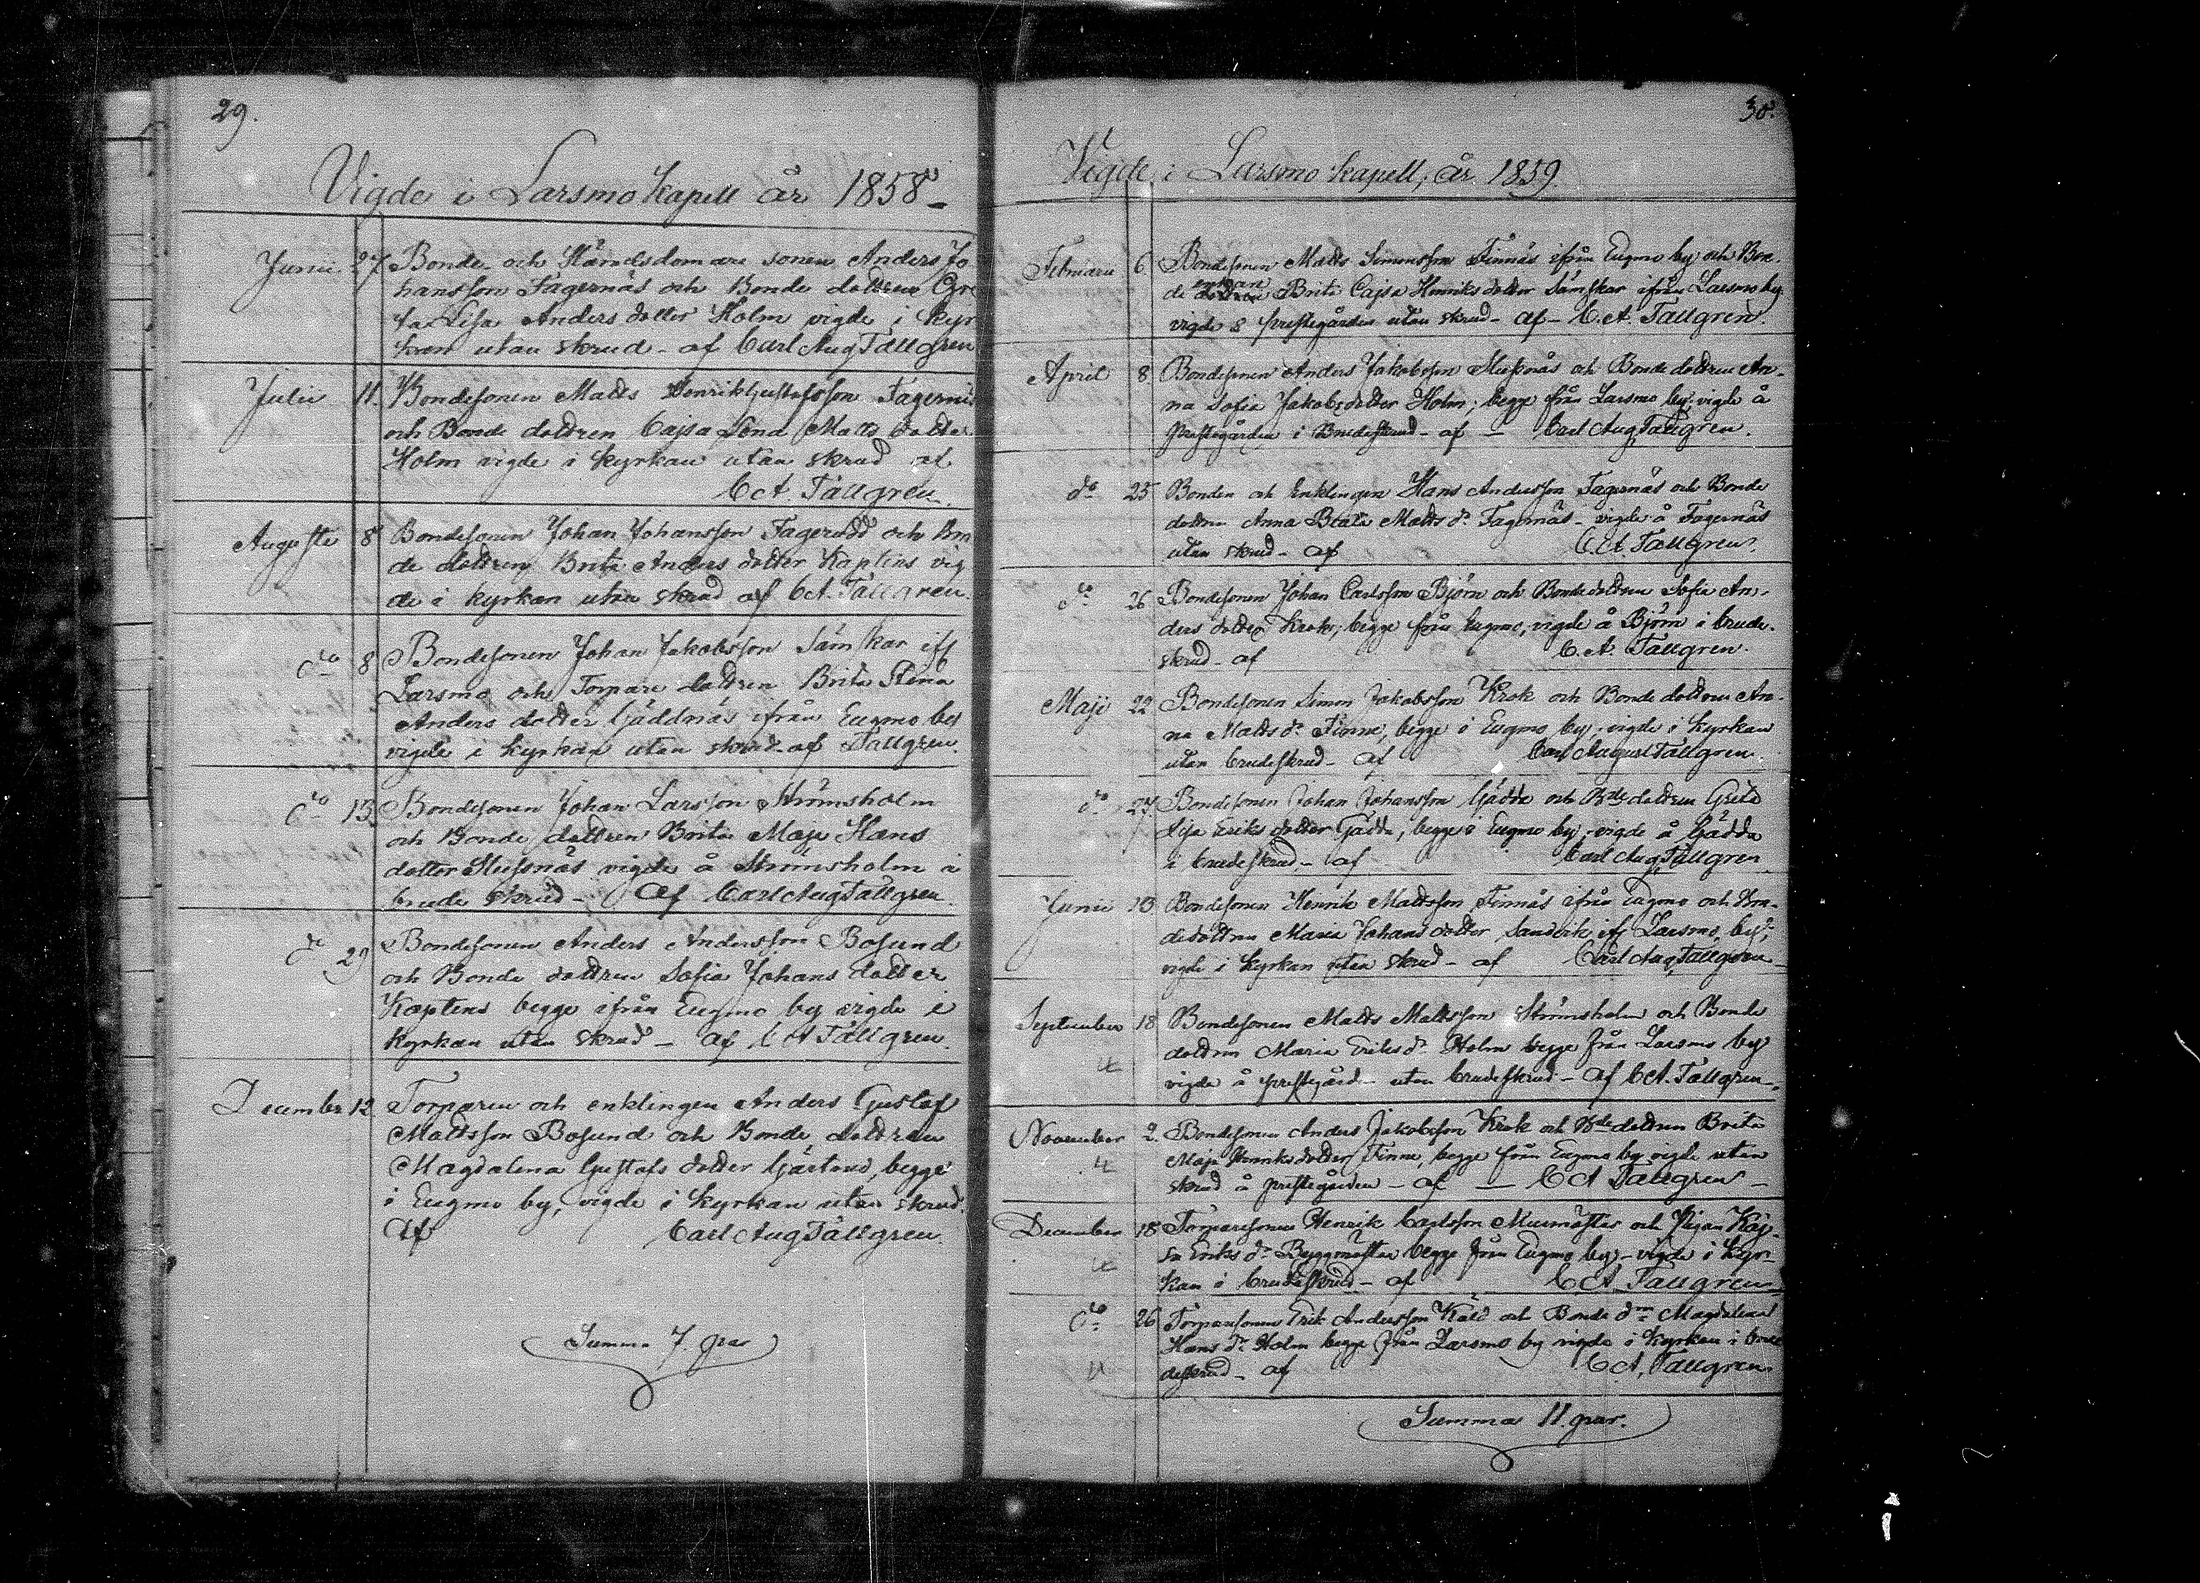 29.
Vigde i Larsmo Kapell år 1858
Junii 27 Bonde och Nämdsdomare sonen Anders Jo
hansson Fagernäs och Bonde dottren Gre
ta Lisa Anders dotter Holm vigde i kyr
kan utan skrud - af Carl Aug Tållgren
Julii 11. Bondesonen Matts Henrik Gustafsson Fagernäs
och Bonde dottren Cajsa Lena Matts dotter
Holm vigde i kyrkan utan skrud af
C A. Tållgren.
Augusti 8 Bondesonen Johan Johansson Fagerudd och Bon
de dottren Brita Anders dotter Kaptens vig
de i kyrkan utan skrud af C A. Tållgren.
do 8 Bondesonen Johan Jakobsson Sämskar ifr
Larsmo och Torpare dottren Brita Stina
Anders dotter Gäddnäs ifrån Eugmo by
vigde i kyrkan utan skrud af Tållgren.
do 13. Bondesonen Johan Larsson Strömsholm
och Bonde dottren Brita Maja Hans
dotter Slussnäs vigde å Strömsholm i
brude skrud - Af Carl Aug Tållgren.
do 29 Bondesonen Anders Andersson Bosund
och Bonde dottren Sofia Johans dotter
Kaptens begge ifrån Eugmo by vigde i
kyrkan utan skrud - Af C A Tållgren.
December 12 Torparen och enklingen Anders Gustaf
Mattsson Bosund och Bonde dottren
Magdalena Gustafs dotter Gästens, begge
i Eugmo by, vigde i kyrkan utan skrud.
Af Carl Aug Tållgren.
Summa 7. par
30.
Vigde i Larsmo kapell, år 1859.
Februari 6. Bondesonen Matts Simonsson Finnäs ifrån Eugmo by och Bon-
enkan
de dottren Brita Cajsa Henriks dotter Sämskar ifrån Larsmo by
vigde å prestegården utan skrud - af - C. A. Tållgren.
April 8. Bondesonen Anders Jakobsson Slussnäs och Bonde dottren An-
na Sofia Jakobs dotter Holm; begge från Larsmo by; vigde å
prestegården i Brudeskrud - af - Carl Aug Tållgren.
do 25 Bonden och Enklingen Hans Andersson Fagernäs och Bonde
dottren Anna Beata Matts dr Fagernäs - vigde å Fagernäs
utan skrud - af C. A. Tållgren.
do 26 Bondesonen Johan Carlsson Björn och Bondedottren Sofia An-
ders dotter Krok; begge från Eugmo, vigde å Björn i brude-
skrud - af C. A. Tållgren.
Maji 22 Bondesonen Simon Jakobsson Krok och Bonde dottren An-
na Matts dr Finne, begge i Eugmo by - vigde i kyrkan
utan brudeskrud - af Carl August Tållgren.
do 27. Bondesonen Johan Johansson Gädda och Bde dottren Greta
Lisa Eriks dotter Gädda, begge i Eugmo by - vigde å Gädda
i brudeskrud - af Carl Aug Tållgren
Junii 13 Bondesonen Henrik Mattsson Finnäs ifrån Eugmo och Bon-
dedottren Maria Johans dotter Sandvik ifr Larsmo by;
vigde i kyrkan utan skrud - af Carl Aug Tållgren
September 18 Bondesonen Matts Mattsson Strömsholm och Bonde
dottren Maria Eriks dr Holm begge från Larsmo by
vigde å prestegård - utan brudeskrud - af C A. Tållgren.
November 2. Bondesonen Anders Jakobsson Krok och Bde dottren Brita
Maja Henriks dotter Finne, begge från Eugmo by vigde utan
skrud å prestegården - af - C A Tållgren -
December 18 Torparesonen Henrik Carlsson Murmästar och Pigan Kaj-
sa Eriks dr Byggmästar begge från Eugmo by - vigde i kyr-
kan i brudeskrud - af C A. Tållgren
do 26 Torparesonen Erik Andersson Kåld och Bonde drn Magdalena
Hans dr Holm begge från Larsmo by vigde i kyrkan i bru
deskrud - af C A. Tållgren.
Summa 11. par.